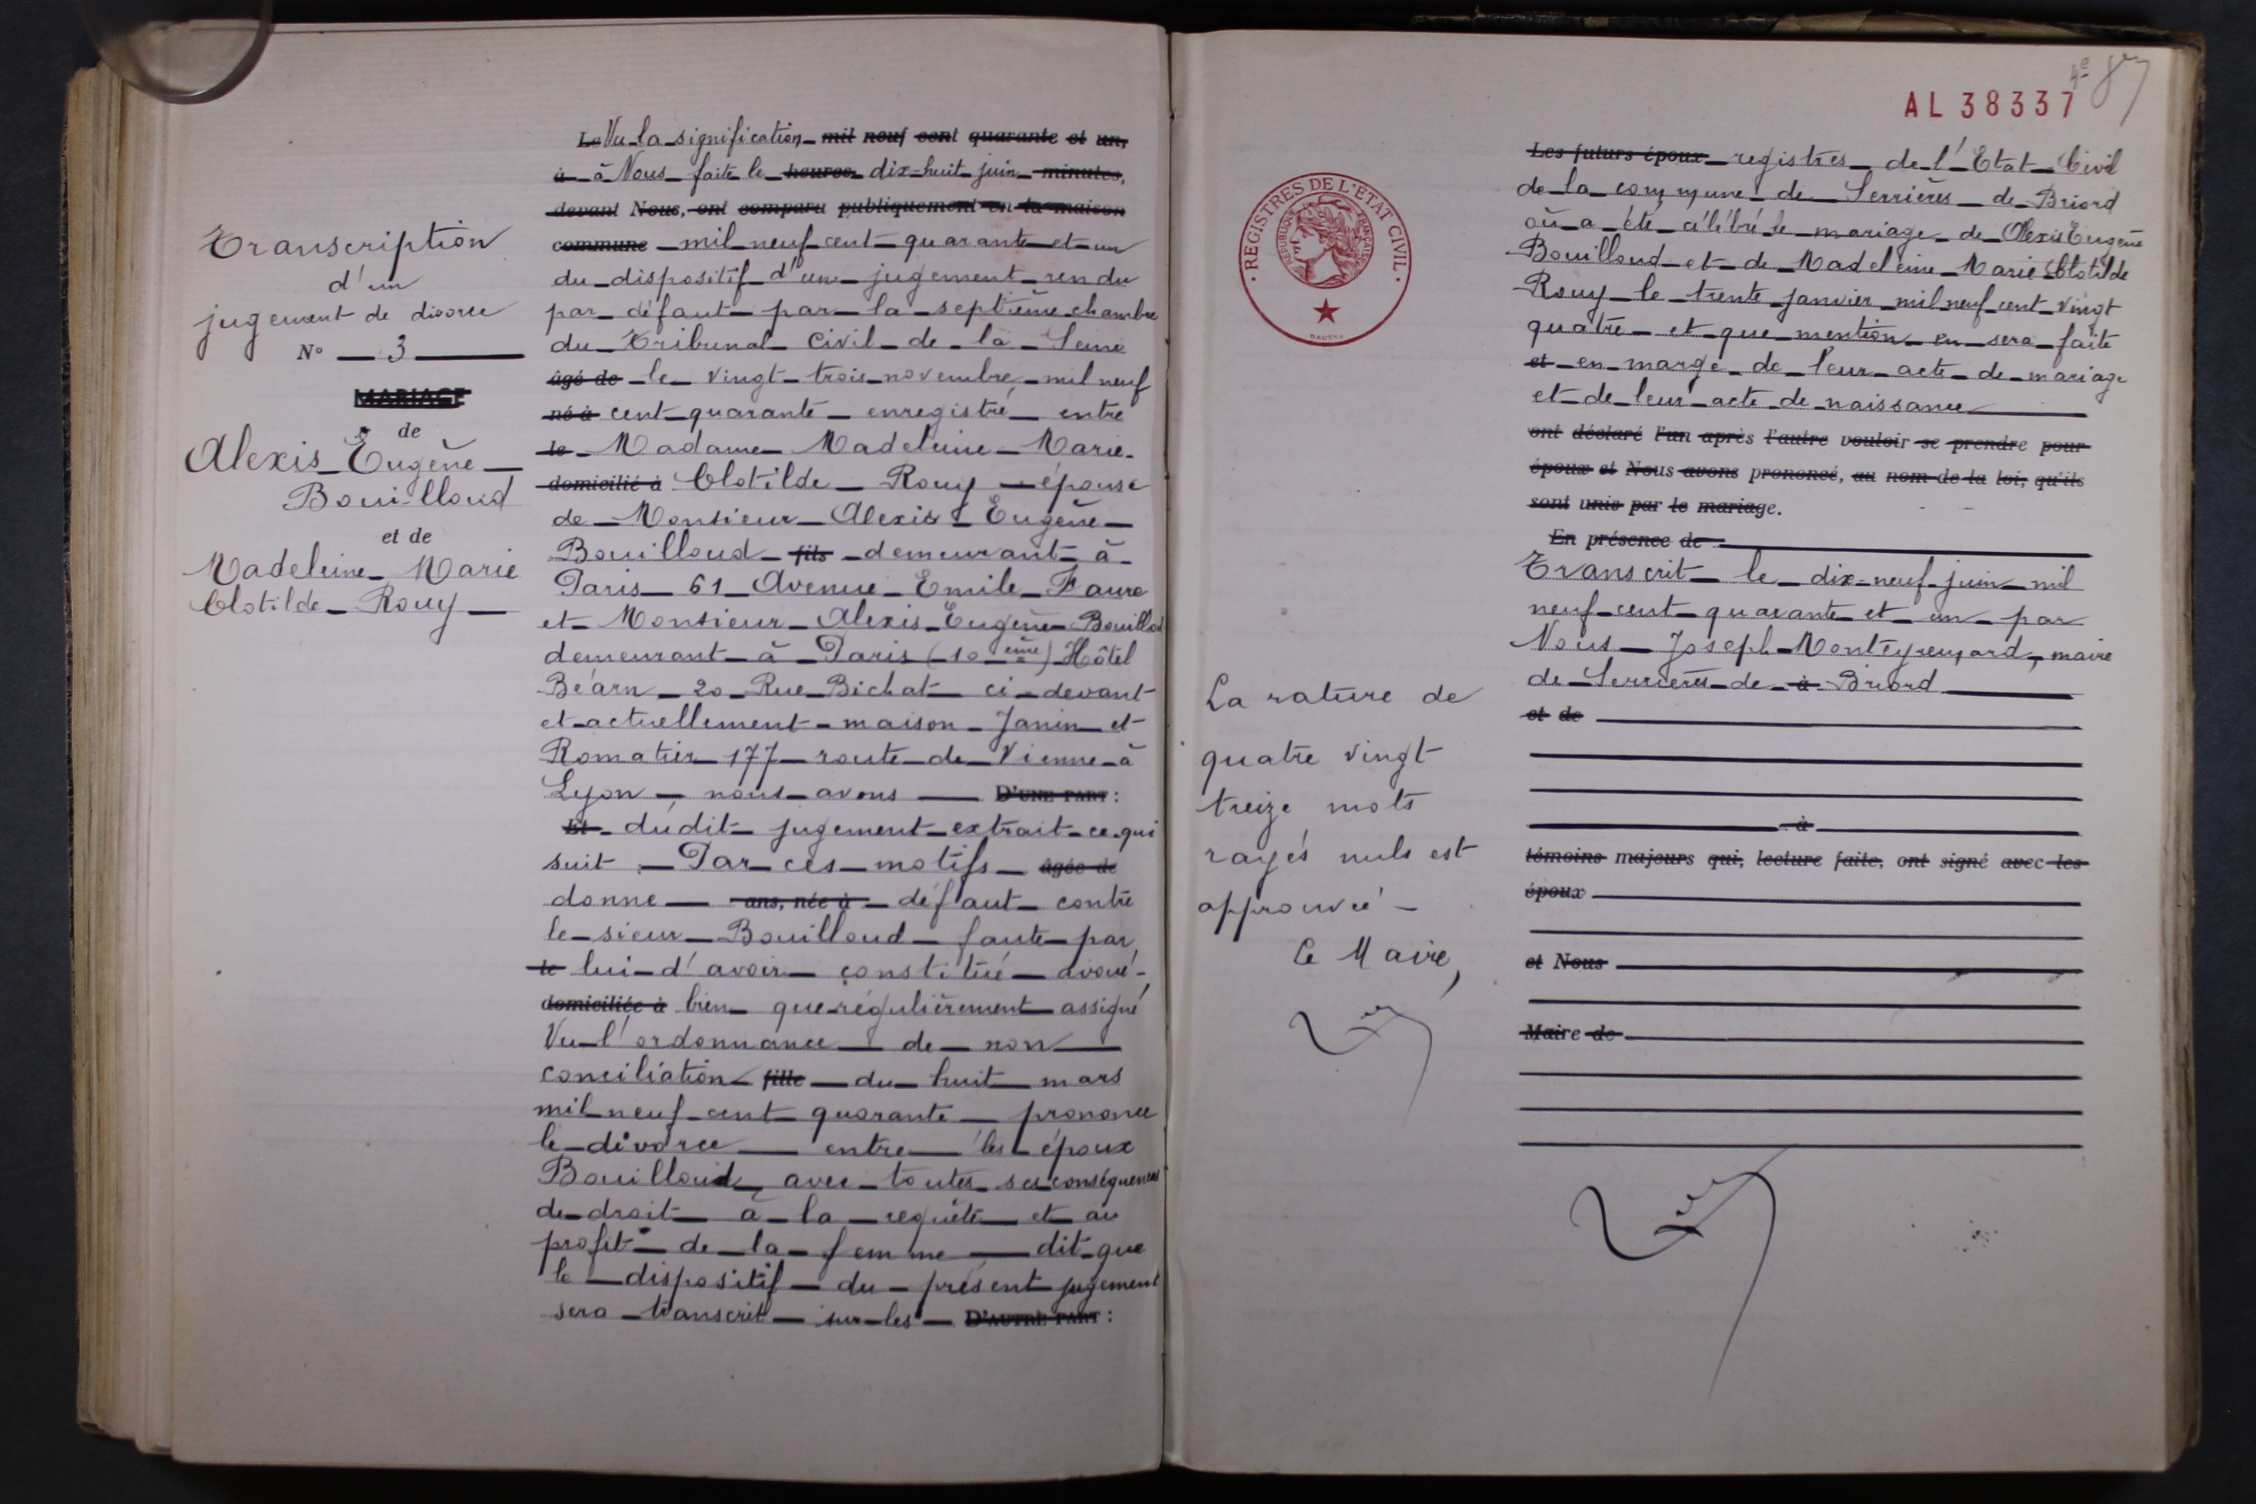 Transcription
d'un
jugement de divorce
N° 3
MARIAGE
de
Alexis Eugène
Bouilloud
et de
Madeleine Marie
Clotilde Rouy
Le Vu la signification mil neuf cent quarante et un,
à à Nous faite le heures dix-huit juin minutes,
devant Nous, ont comparu publiquement en la maison
commune mil neuf cent quarante et un
du dispositif d'un jugement rendu
par défaut par la septième chambre
du Tribunal Civil de la Seine
âgé de le vingt trois novembre mil neuf
né à cent quarante enregistré entre
le Madame Madeleine Marie
domicilié à Clotilde Rouy épouse
de Monsieur Alexis Eugène
Bouilloud fils demeurant à
Paris 61 Avenue Emile Faure
et Monsieur Alexis Eugène Bouilloud
demeurant à Paris (10ème) Hôtel
Béarn 20 Rue Bichat ci-devant
et actuellement maison Janin et
Romatier 177 route de Vienne à
Lyon, nous avons D'UNE PART :
Et dudit jugement extrait ce qui
suit Par ces motifs âgée de
donne ans, née à défaut contre
le sieur Bouilloud faute par
le lui d'avoir constitué avoué
domiciliée à bien que régulièrement assigné
Vu l'ordonnance de non
conciliation fille du huit mars
mil neuf cent quarante prononce
le divorce entre les époux
Bouilloud, avec toutes ses conséquences
de droit à la requête et au
profit de la femme dit que
le dispositif du présent jugement
sera transcrit sur les D'AUTRE PART :
REGISTRES DE L'ETAT CIVIL
REPUBLIQUE FRANÇAISE
4e 87
AL 38337
Les futurs époux registres de l'Etat Civil
de la commune de Serrières de Briord
où a été célébré le mariage de Alexis Eugène
Bouilloud et de Madeleine Marie Clotilde
Rouy le trente janvier mil neuf cent vingt
quatre et que mention en sera faite
et en marge de leur acte de mariage
et de leur acte de naissance
ont déclaré l'un après l'autre vouloir se prendre pour
époux et Nous avons prononcé, au nom de la loi, qu'ils
sont unis par le mariage.
En présence de
Transcrit le dix-neuf juin mil
neuf cent quarante et un par
Nous Joseph maire
de Serrières de à Briord
et de
à
témoins majeurs qui, lecture faite, ont signé avec les
époux
et Nous
Maire de
La rature de
quatre vingt
treize mots
rayés nuls est
approuvée
Le Maire,